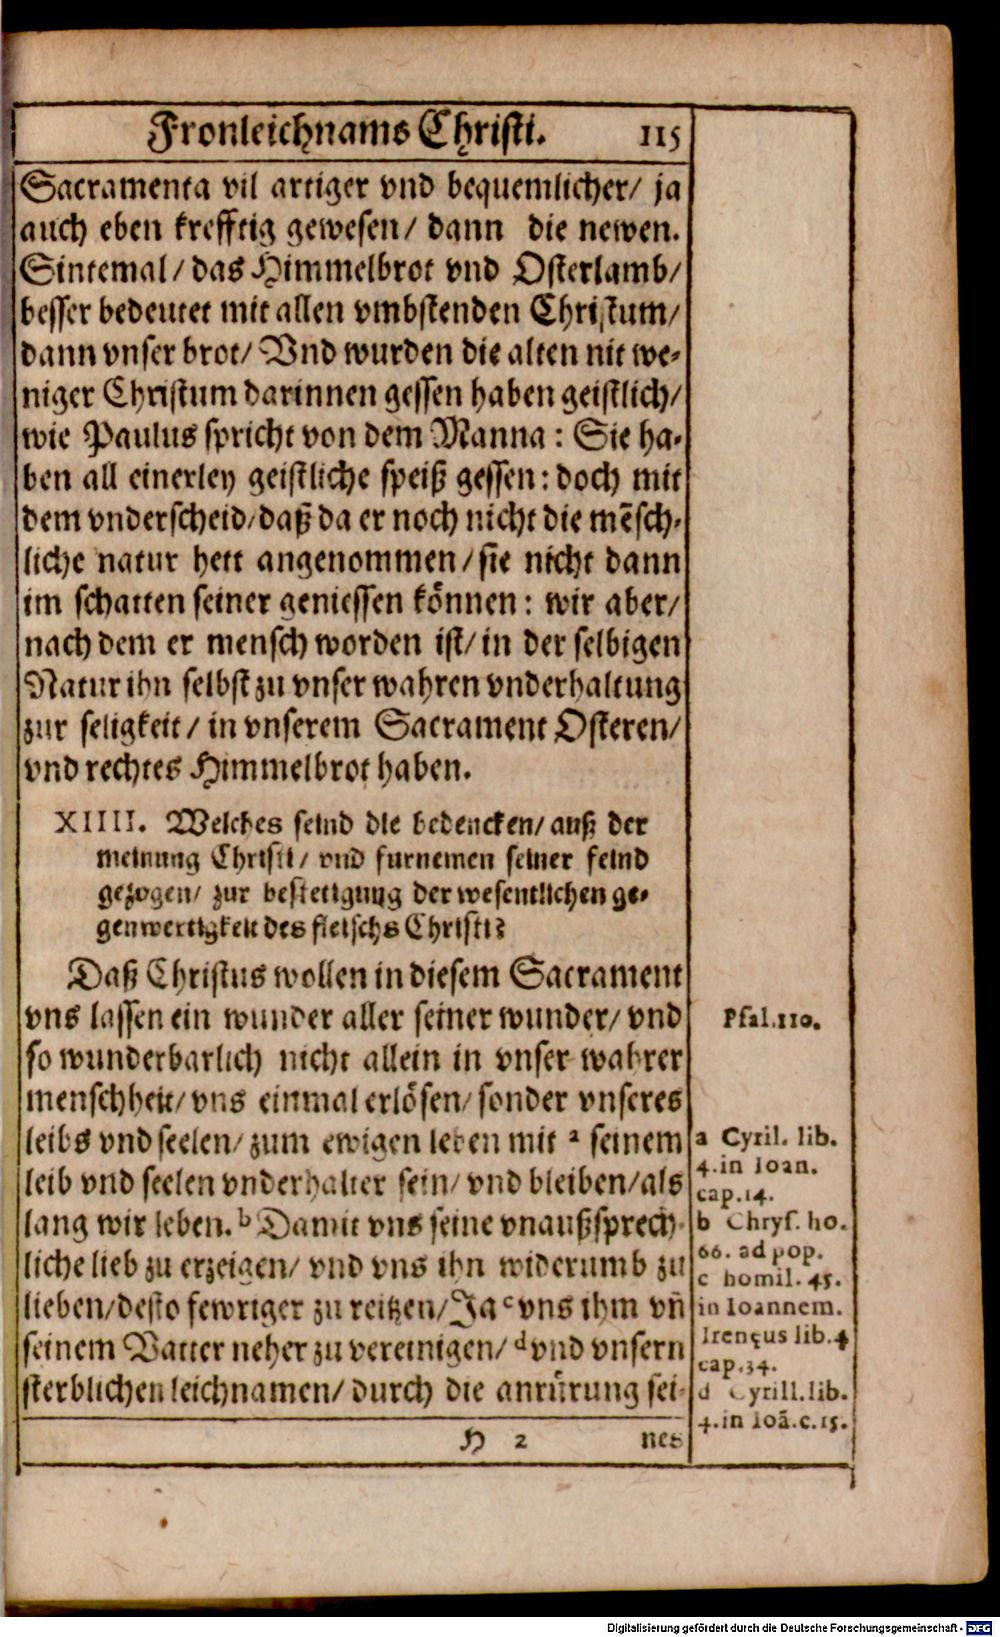 Fronleichnams Christi. 115
Sacramenta vil artiger vnd bequemlicher/ ja
auch eben krefftig gewesen/ dann die newen.
Sintemal/ das Himmelbrot vnd Osterlamb/
besser bedeutet mit allen vmbstenden Christum/
dann vnser brot/ Vnd wurden die alten nit we-
niger Christum darinnen gessen haben geistlich/
wie Paulus spricht von dem Manna: Sie ha-
ben all einerley geistliche speiß gessen: doch mit
dem vnderscheid/ daß da er noch nicht die mẽsch-
liche natur hett angenommen/ sie nicht dann
im schatten seiner geniessen können: wir aber/
nach dem er mensch worden ist/ in der selbigen
Natur ihn selbst zu vnser wahren vnderhaltung
zur seligkeit/ in vnserem Sacrament Osteren/
vnd rechtes Himmelbrot haben.
XIIII. Welches seind die bedencken/ auß der
meinung Christi/ vnd furnemen seiner feind
gezogen/ zur bestetigung der wesentlichen ge-
genwertigkeit des fleischs Christi?
Daß Christus wollen in diesem Sacrament
vns lassen ein wunder aller seiner wunder/ vnd
so wunderbarlich nicht allein in vnser wahrer
menschheit/ vns einmal erlösen/ sonder vnseres
leibs vnd seelen/ zum ewigen leben mit a seinem
leib vnd seelen vnderhalter sein/ vnd bleiben/ als
lang wir leben. b Damit vns seine vnaußsprech-
liche lieb zu erzeigen/ vnd vns ihn widerumb zu
lieben/ desto fewriger zu reitzen/ Ja c vns ihm vñ
seinem Vatter neher zu vereinigen/ d vnd vnsern
sterblichen leichnamen/ durch die anrürung sei-
H 2 nes
Psal. 110.
a Cyril. lib.
4. in Ioan.
cap. 14.
b Chrys. ho.
66. ad pop.
c homil. 45.
in Ioannem.
Irenęus lib. 4
cap. 34.
d Cyrill. lib.
4. in Ioã. c. 15.
Digitalisierung gefördert durch die Deutsche Forschungsgemeinschaft - DFG